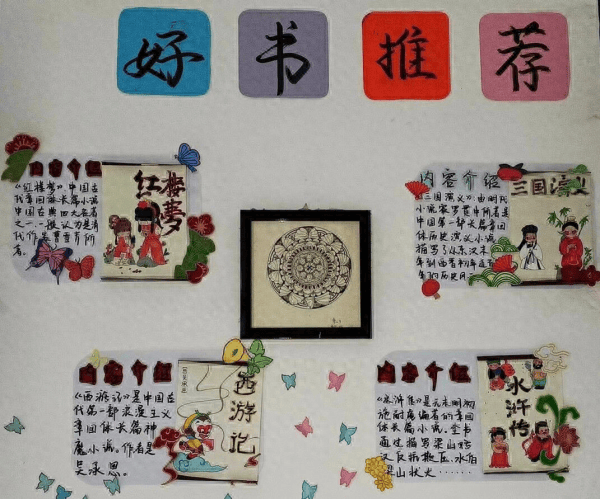 好书推荐
内容介绍
《红楼梦》,中国古
代章回体长篇小说
中国古典四大名著
之一
者。
红楼梦
内容介绍
《三国演义》由明代
小说家罗贯中所著是
中国第一部长篇章回
体历史演义小说
描写了从东汉末
三国演义
内容介绍
《西游记》是中国古
代第一部浪漫主义
章回体长篇神
魔小说。作者是
吴承恩。
西游记
内容介绍
《水浒传》是元末明初
施耐庵编著的章回
体长篇小说。全书
通过描写梁山好
汉反抗欺压、水泊
梁山
水浒传